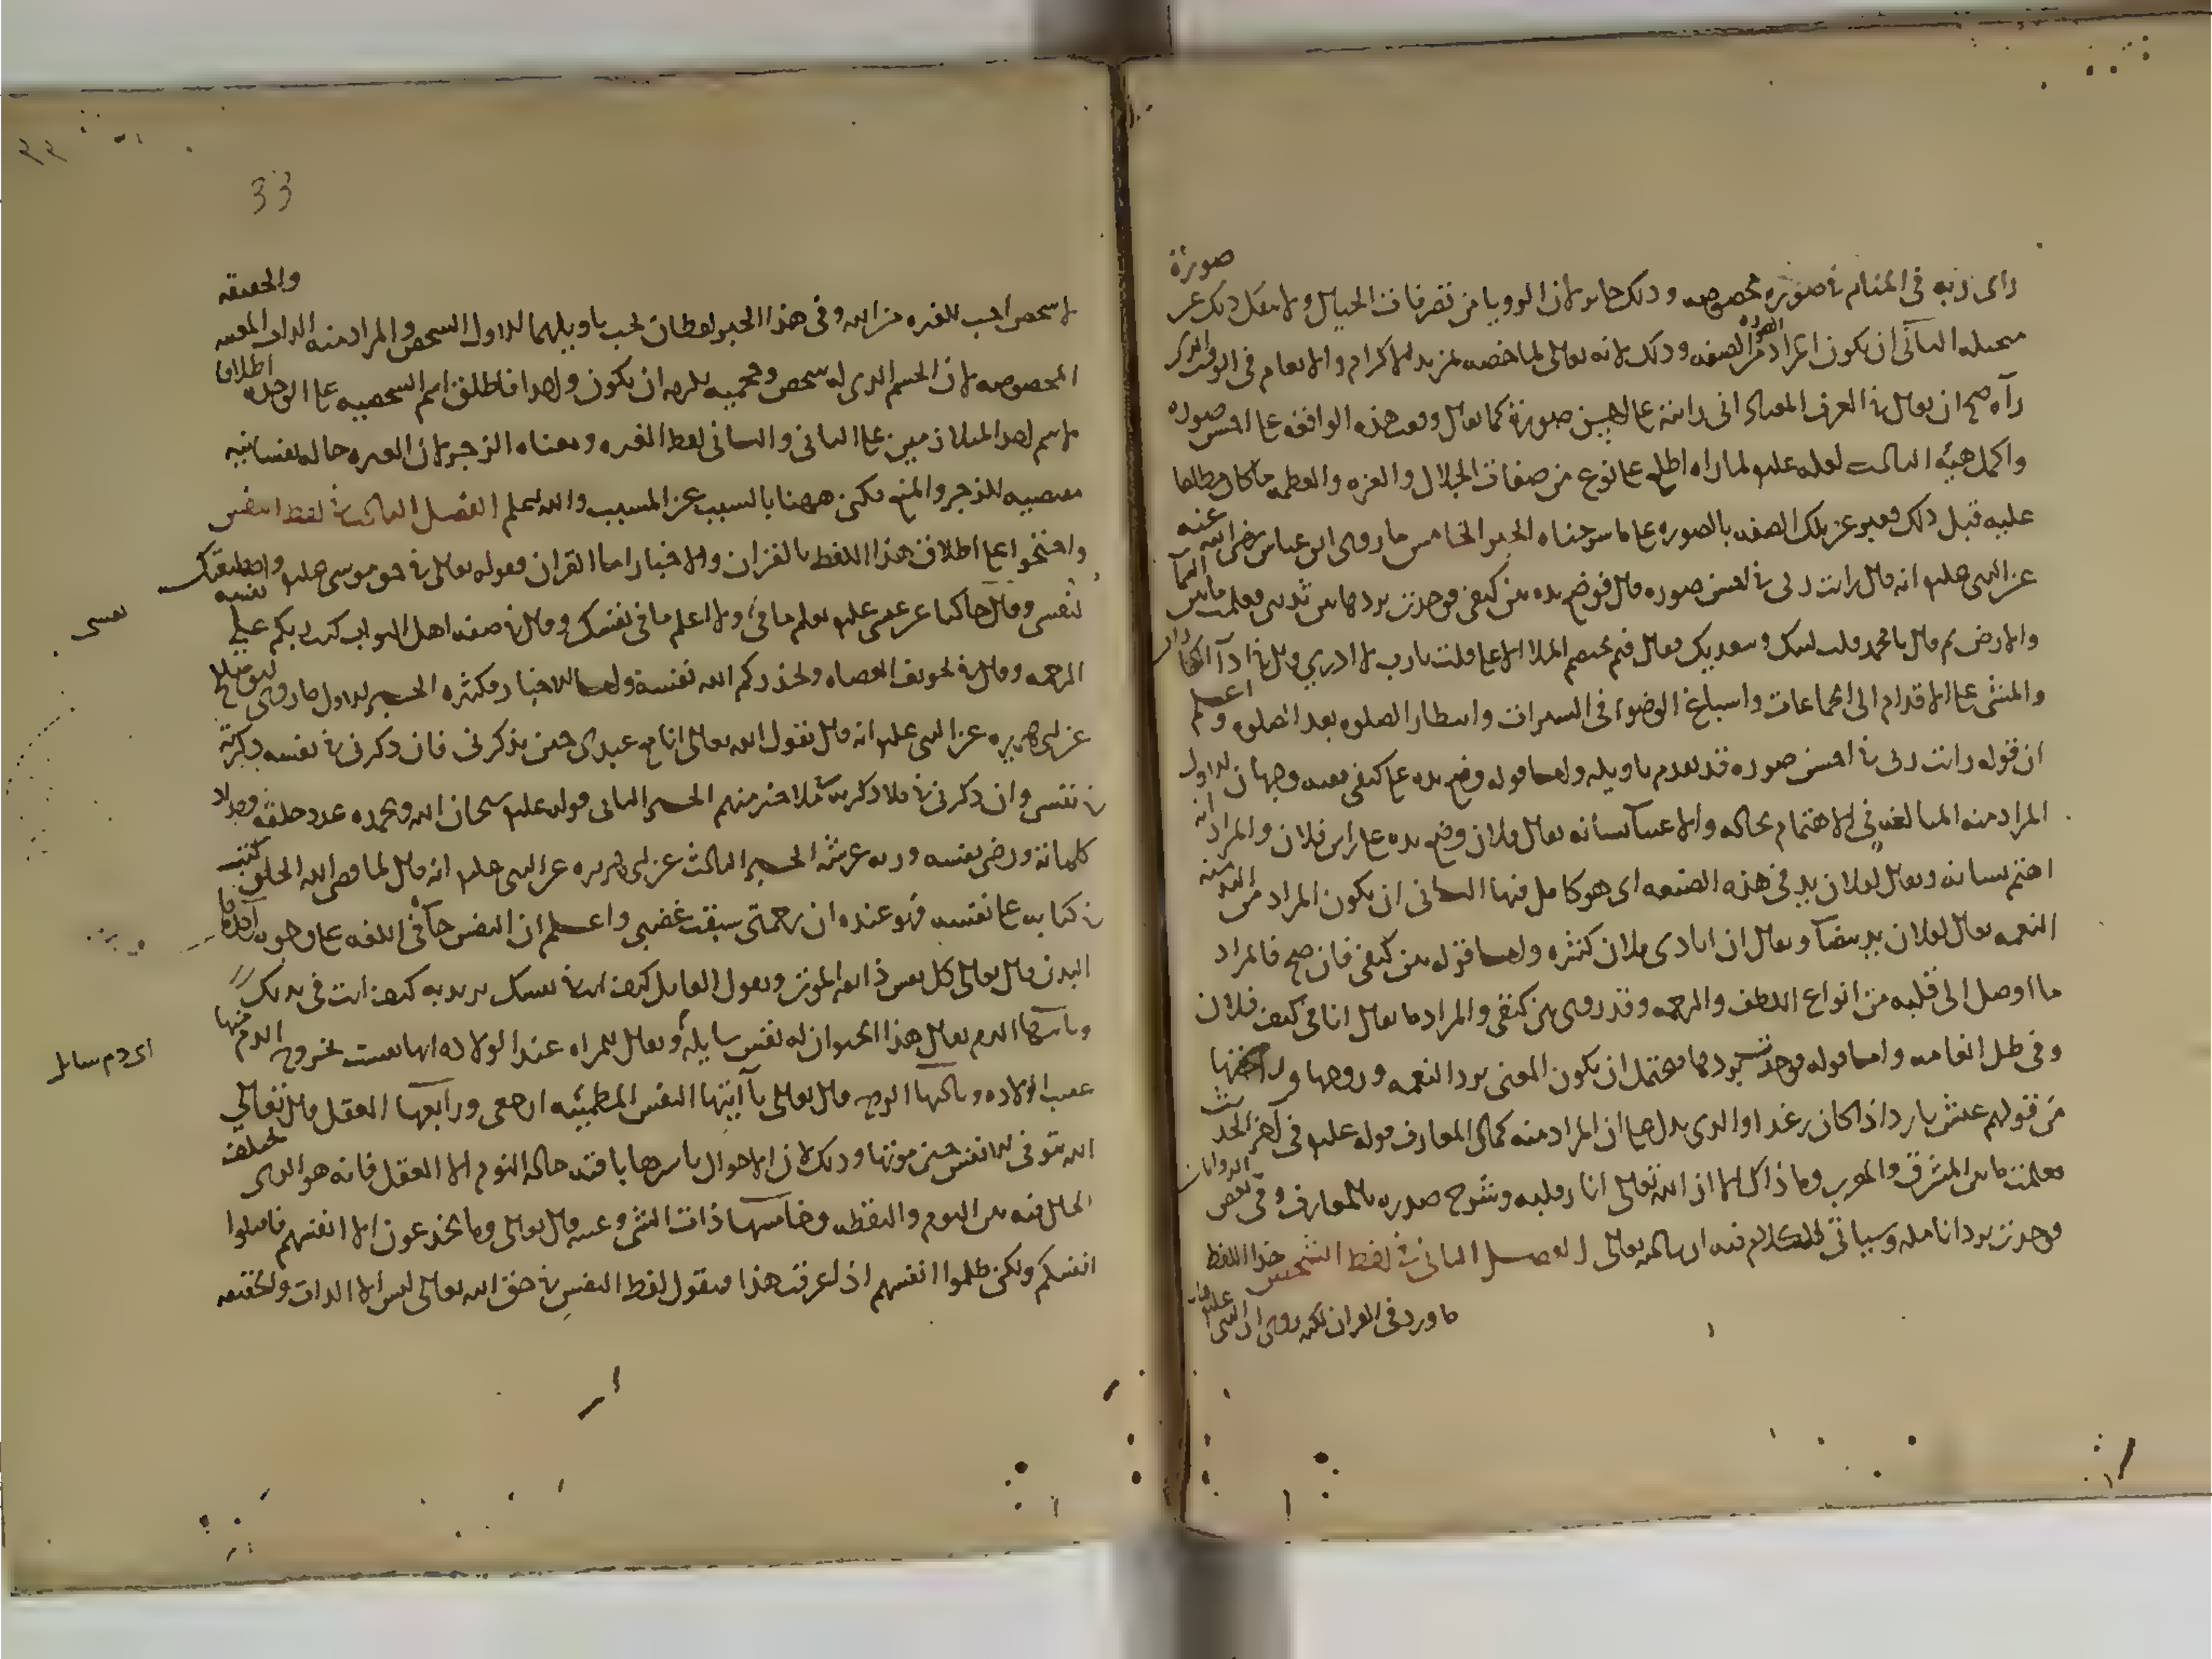 رأى ربه في المنام في صورة مخصوصة وذلك جائز لأن الرويا من تصرفات الخيال ولا ينفك ذلك عن صورة
متخيله الثاني ان يكون المراد من الصورة الصفه وذلك لانه تعالى لما خصه بمزيد الاكرام والانعام في الوقت الذي
رآه صح ان يقال في العرف المعتاد اني رايته على احسن صورة كما يقال وقعت هذه الواقعة على احسن صوره
واكمل هيئه الثالث لعله عليه لما راه اطلع على نوع من صفات الجلال والعزه والعظمه ما كان مطلعا
عليه قبل ذلك فعبر عن تلك الصفه بالصوره على ما شرحناه الخبر الخامس ما روى ابن عباس رضى الله عنه
عن النبي عليه انه قال رايت ربى في احسن صوره قال فوضع يده بين كتفي فوجدت بردها بين ثديي فعلمت ما بين السما
والارض ثم قال يا محمد قلت لبيك وسعديك فقال فيم يختصم الملا الاعلى قلت يا رب لا ادري قال في ادآ الكفارات
والمشى على الاقدام الى الجماعات واسباغ الوضوء في السبرات وانتظار الصلوه بعد الصلوه واعلم
ان قوله رايت ربى في احسن صوره قد تقدم تاويله واما قوله وضع يده على كتفي ففيه وجهان الاول
المراد منه المبالغه في الاهتمام بحاله والاعتنآ بشانه يقال لفلان وضع يده على راس فلان والمراد انه
اهتم بشانه ويقال لفلان يد في هذه الصنعه اى هو كامل فيها الثاني ان يكون المراد من اليد منه
النعمه يقال لفلان يد بيضآ ويقال ان ايادى فلان كثيره واما قوله بين كتفي فان صح فالمراد
ما اوصل الى قلبه من انواع اللطف والرحمه وقد روى بين كنفي والمراد ما يقال انا في كنف فلان
وفي ظل انعامه واما قوله فوجدت بردها فيحتمل ان يكون المعنى برد النعمه وروحها وراحتها
من قولهم عيش بارد اذا كان رغدا والذى يدل على ان المراد منه كمال المعارف قوله عليه في اخر الحديث
فعلمت ما بين المشرق والمغرب وما ذاك الا ان الله تعالى انار قلبه وشرح صدره بالمعارف وفي بعض الروايات
فوجدت برد انامله وسياتي الكلام فيه ان شا الله تعالى الفصل الثاني في لفظ الشخص هذا اللفظ
ما ورد في القران لكنه روى ان النبي عليه قال
33
لا شخص احب للغيره من الله وفي هذا الخبر لفظان يجب تاويلهما الاول الشخص والمراد منه الذات المعينه والحقيقه
المخصوصه لان الجسم الذى له شخص وحجميه يلزمه ان يكون واحدا فاطلق اسم الشخصيه على الوحده اطلاق
لاسم احد المتلازمين على الثاني والثاني لفظ الغيره ومعناه الزجر لان الغيره حاله نفسانيه
مقتضيه للزجر والمنع فكنى ههنا بالسبب عن المسبب والله اعلم الفصل الثالث في لفظ النفس
واحتجوا على اطلاق هذا اللفظ بالقران والاخبار اما القران فقوله تعالى في حق موسى عليه واصطنعتك
لنفسى وقال حاكيا عن عيسى عليه تعلم ما في ولا اعلم ما في نفسك وقال في صفه اهل الثواب كتب ربكم على نفسه
نفسى
الرحمه وقال في تخويف العصاه ويحذركم الله نفسه واما الاخبار فكثيره الخبر الاول ما روى ابو صالح
عن ابى هريره عن النبي عليه انه قال يقول الله تعالى انا مع عبدى حين يذكرنى فان ذكرنى في نفسه ذكرته
في نفسى وان ذكرنى في ملا ذكرته في ملا خير منهم الخبر الثاني قوله عليه سبحان الله وبحمده عدد خلقه ومداد
كلماته ورضى نفسه وزنه عرشه الخبر الثالث عن ابى هريره عن النبي عليه انه قال لما قضى الله الخلق كتب
في كتابه على نفسه فهو عنده ان رحمتى سبقت غضبي واعلم ان النفس جآ في اللغه على وجوه احدها
البدن قال تعالى كل نفس ذائقه الموت ويقول القايل كيف انت في نفسك يريد به كيف انت في بدنك
وثانيها الدم يقال هذا الحيوان له نفس سايله ويقال للمراه عند الولاده انها نفست لخروج الدم منها
اى دم سايل
عقيب الولاده وثالثها الروح قال تعالى يا آيتها النفس المطمئنه ارجعى ورابعها العقل قال تعالى
الله يتوفى الانفس حين موتها وذلك لان الاحوال باسرها باقيه حاله النوم الا العقل فانه هو الذى يختلف
الحال فيه بين النوم واليقظه وخامسها ذات الشى وعينه قال تعالى وما يخدعون الا انفسهم فاقتلوا
انفسكم ولكن ظلموا انفسهم اذا عرفت هذا فنقول لفظ النفس في حق الله تعالى ليس الا الذات والحقيقه